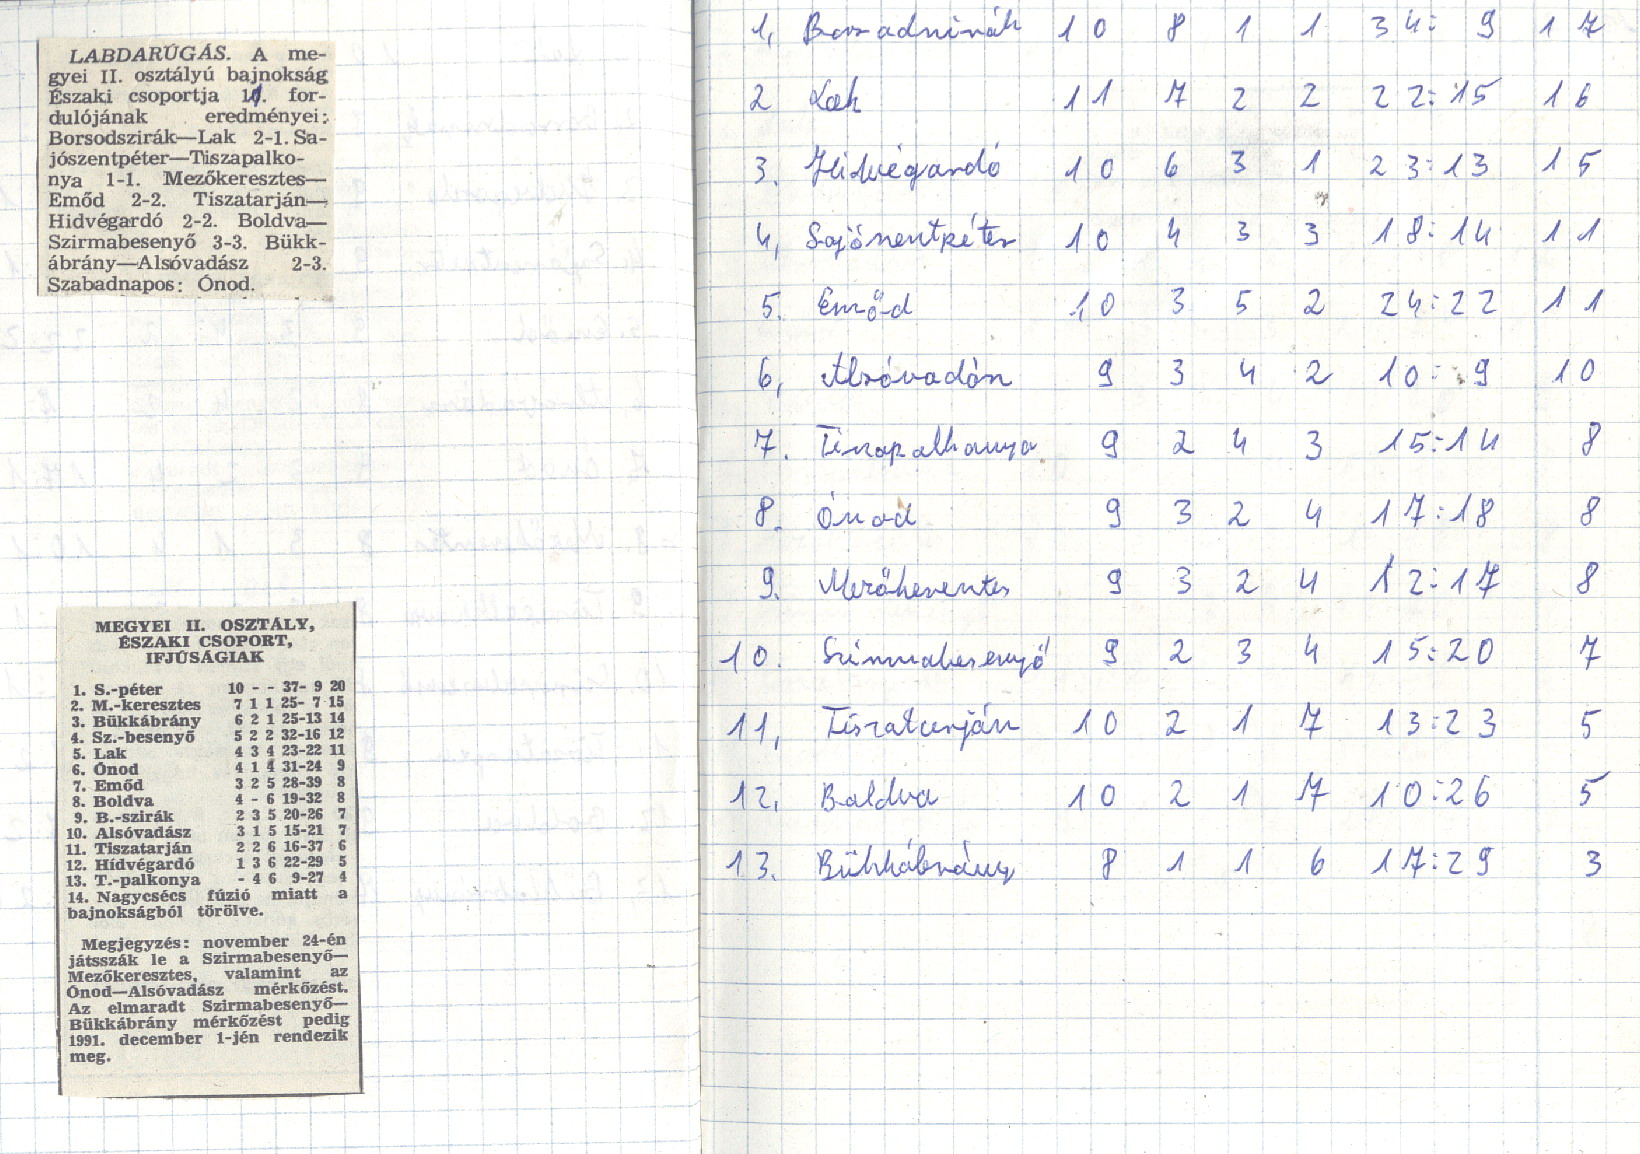 LABDARÚGÁS. A me-
gyei II. osztályú bajnokság
Északi csoportja 11. for-
dulójának eredményei:
Borsodszirák—Lak 2-1. Sa-
jószentpéter—Tiszapalko-
nya 1-1. Mezőkeresztes—
Emőd 2-2. Tiszatarján—
Hidvégardó 2-2. Boldva—
Szirmabesenyő 3-3. Bükk-
ábrány—Alsóvadász 2-3.
Szabadnapos: Ónod.
MEGYEI II. OSZTÁLY,
ÉSZAKI CSOPORT,
IFJÚSÁGIAK
1. S.-péter 10 - - 37- 9 20
2. M.-keresztes 7 1 1 25- 7 15
3. Bükkábrány 6 2 1 25-13 14
4. Sz.-besenyő 5 2 2 32-16 12
5. Lak 4 3 4 23-22 11
6. Ónod 4 1 4 31-24 9
7. Emőd 3 2 5 28-39 8
8. Boldva 4 - 6 19-32 8
9. B.-szirák 2 3 5 20-26 7
10. Alsóvadász 3 1 5 15-21 7
11. Tiszatarján 2 2 6 16-37 6
12. Hídvégardó 1 3 6 22-29 5
13. T.-palkonya - 4 6 9-27 4
14. Nagycsécs fúzió miatt a
bajnokságból törölve.
Megjegyzés: november 24-én
játsszák le a Szirmabesenyő—
Mezőkeresztes, valamint az
Ónod—Alsóvadász mérkőzést.
Az elmaradt Szirmabesenyő—
Bükkábrány mérkőzést pedig
1991. december 1-jén rendezik
meg.
1, Borsodszirák 10 8 1 1 34: 9 17
2 Lak 11 7 2 2 22:15 16
3. Hidvégardó 10 6 3 1 23:13 15
4, Sajószentpéter 10 4 3 3 18:14 11
5. Emőd 10 3 5 2 24:22 11
6, Alsóvadász 9 3 4 2 10: 9 10
7. Tiszapalkonya 9 2 4 3 15:14 8
8. Ónod 9 3 2 4 17:18 8
9. Mezőkeresztes 9 3 2 4 12:17 8
10. Szirmabesenyő 9 2 3 4 15:20 7
11, Tiszatarján 10 2 1 7 13:23 5
12, Boldva 10 2 1 7 10:26 5
13. Bükkábrány 8 1 1 6 17:29 3